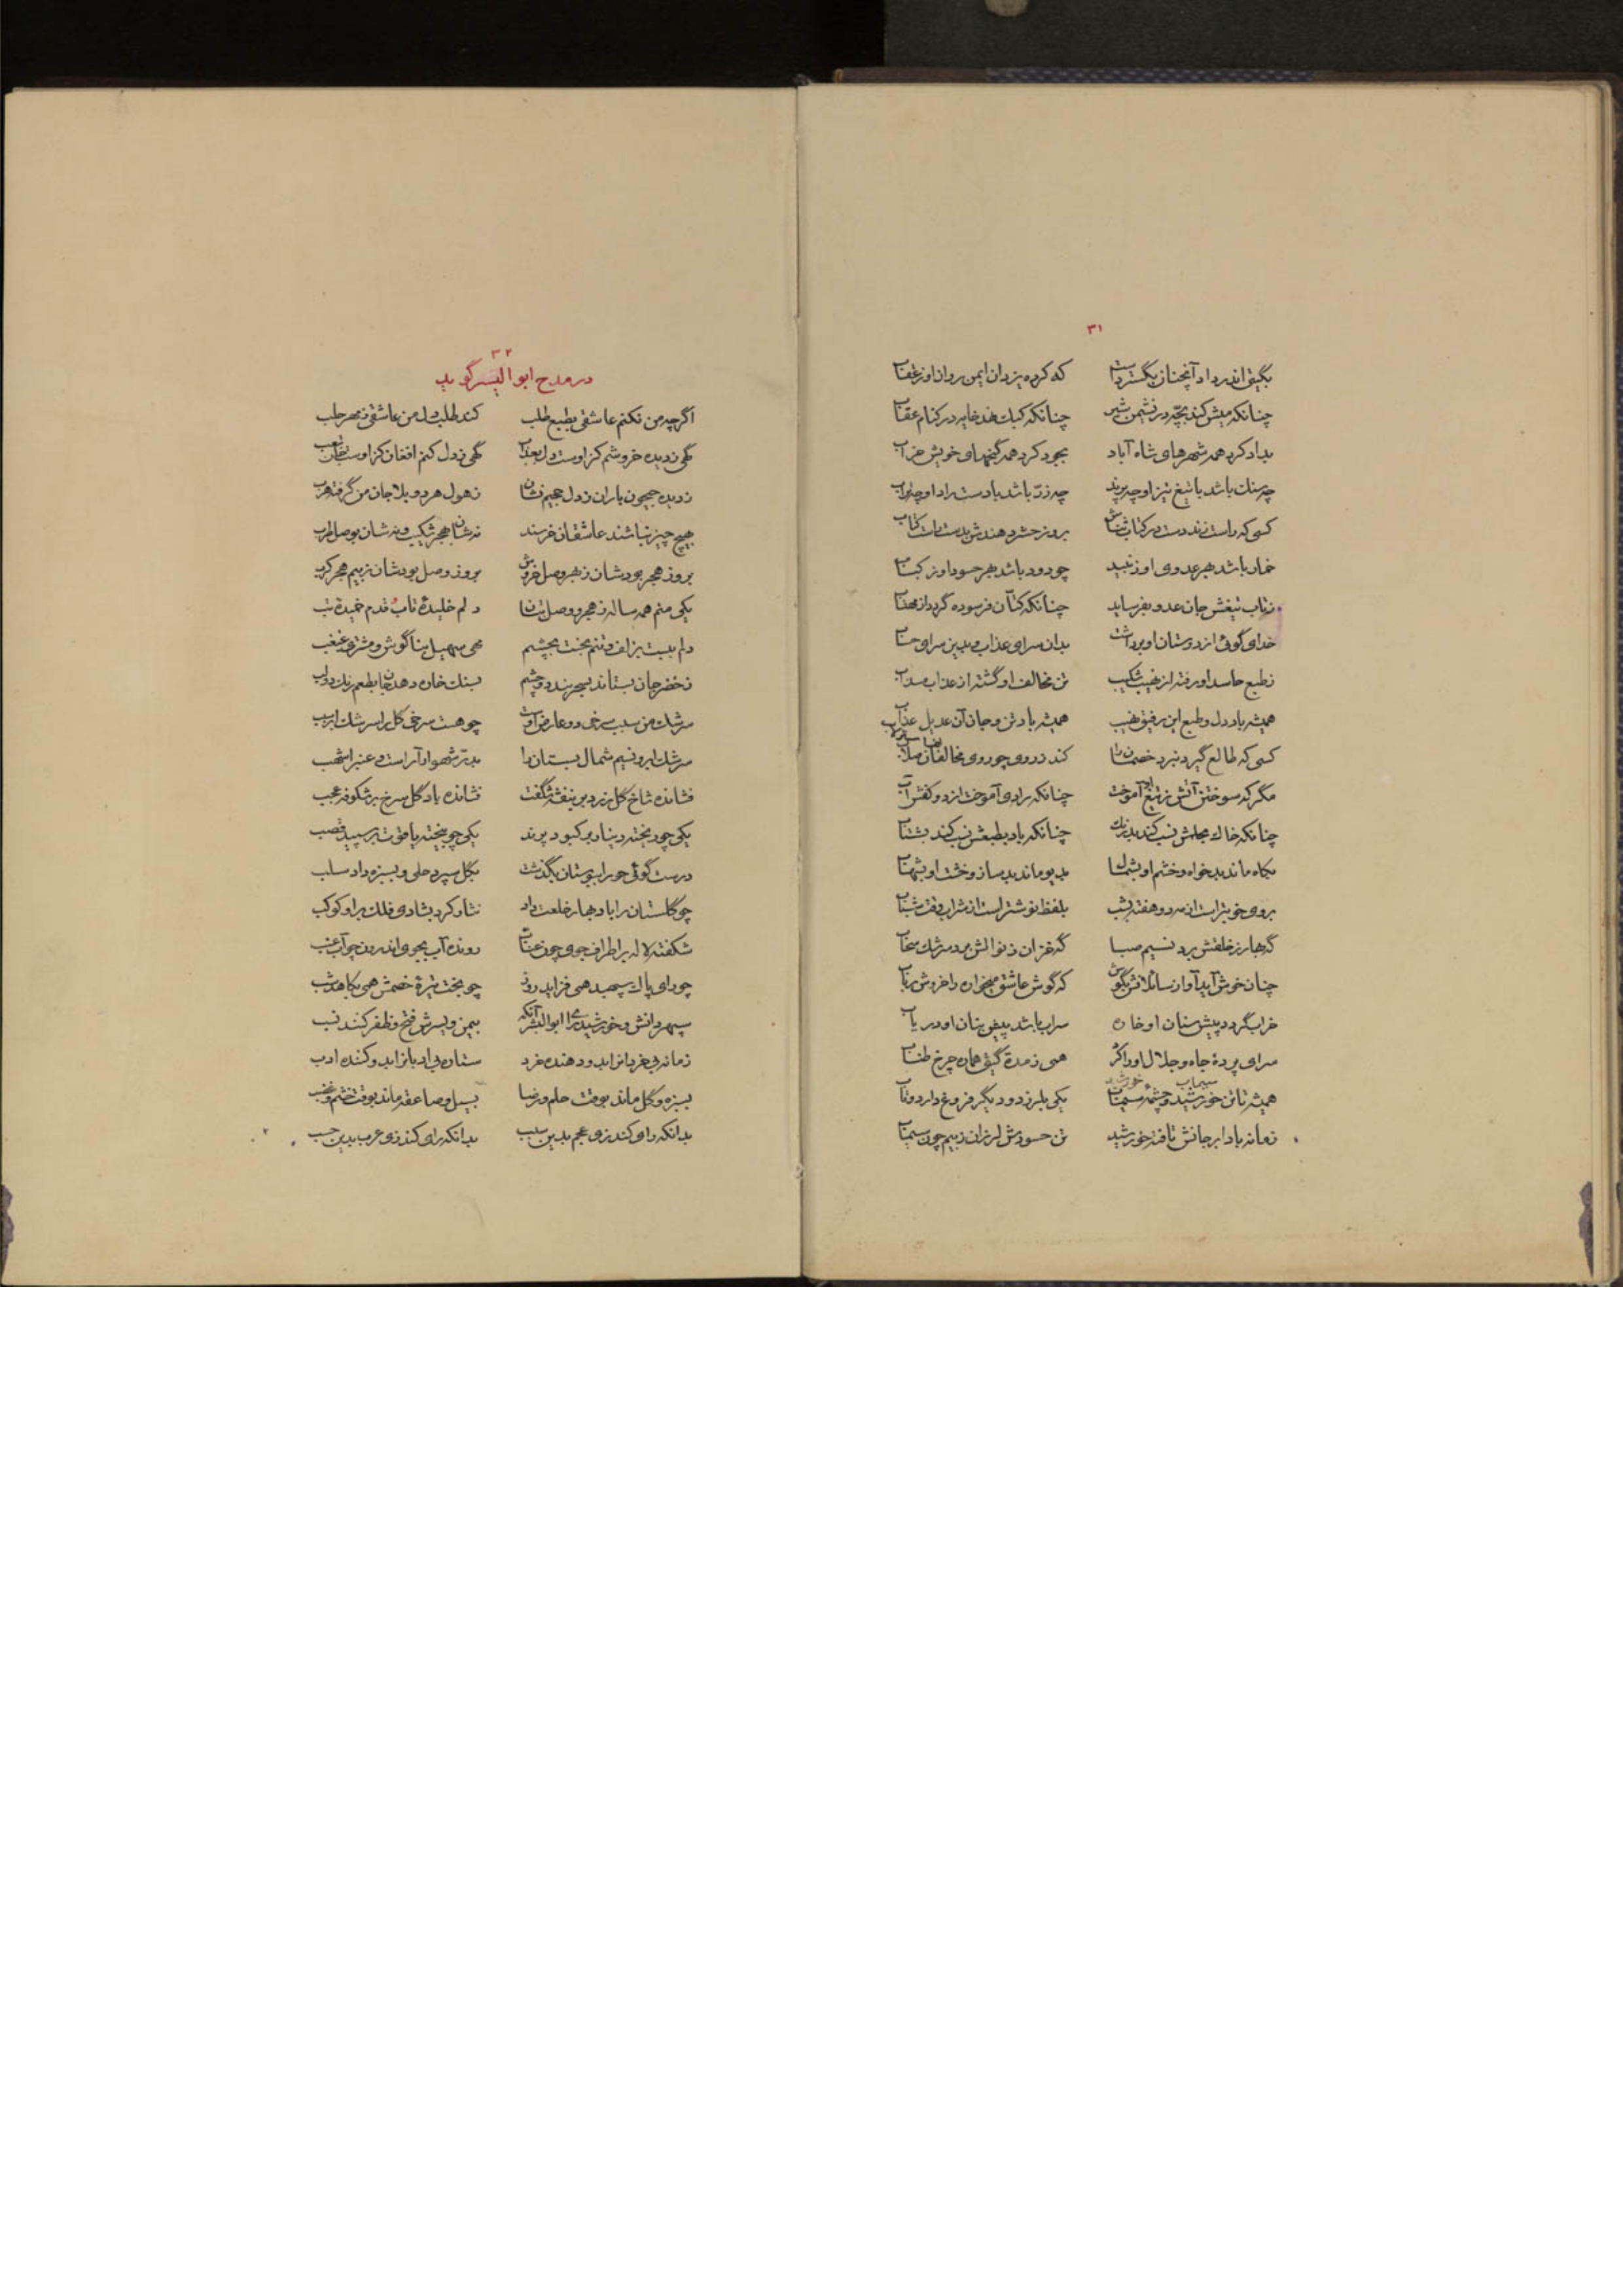 ۳۱
بگیتی اندر داد آنچنان بگسترداست که کرده یزدان ایمن روان او ز عقاب
چنانکه میش کند بچه در نشیمن شیر چنانکه کبک نهد خایه در کنام عقاب
بداد کرد همه شهرهای شاه آباد بجود کرد همه گنجهای خویش خراب
چه سنك باشد با تیغ تیز او چه پرند چه زرّ باشد با دست راد او چه تراب
کسی که راست زند دست در کتاب ثناش بروز حشر دهندش بدست راست کتاب
خمار باشد بهر عدوی او ز نبید چو دود باشد بهر حسود او ز کباب
ز تاب تیغش جان عدو بفرساید چنانکه کتّان فرسوده گردد از مهتاب
خدای گوئی از دوستان او برداشت بدان سرای عذاب و بدین سرای حساب
ز طبع حاسد او رفته از نهیب شکیب تن مخالف او گشته از عذاب مذاب
همیشه باد دل و طبع این رفیق نهیب همیشه باد تن و جان آن عدیل عذاب
کسی که طالع گیرد نبرد خصمان را کند درو چو روی مخالفان صلاب
مگر که سوختن آتش ز تیغ او آموخت چنانکه رادی آموخت از دو کفش آب
چنانکه خاك بحلمش نسب کند بدرنك چنانکه باد بطبعش نسب کند بشتاب
بکاه ماند بدخواه و خشم او بشهاب بدیو ماند بدساز و خشت او بشهاب
بروی خوبتر است از مه دو هفته بشب بلفظ نوشتر است از شراب وقت شباب
گه بهار ز خلقش برد نسیم صبا گه خزان ز نوالش برد سرشك سحاب
چنان خوش آید آواز سائلانش بگوش که گوش عاشق میخواره را خروش رباب
خراب گردد پیش سنان او خاره سراب باشد پیش بنان او دریاب
سرای پردهٔ جاه و جلال او را گر همی ز مدة گیتی هماره چرخ طناب
همیشه تا تن خورشید و چشمهٔ سیماب یکی بلرزد و دیگر فروغ دارد و تاب
زمانه بادا بر جانش تافته خورشید تن حسودش لرزان ز بیم چون سیماب
۳۲
در مدح ابو الیسر گوید
اگرچه من نکنم عاشقی بطبع طلب کند طلب دل من عاشقی ز بهر طرب
گهی ز دیده خروشم کز اوست دل بعذاب گهی ز دل کنم افغان کز اوست جان بتعب
ز دیده جیحون باران ز دل جحیم نشان ز هول هر دو بلا جان من گرفته هرب
بهیچ چیز نباشند عاشقان خرسند نه شان بهجر شکیب و نه شان بوصل طرب
بروز هجر بودشان ز بهر وصل خروش بروز وصل بودشان ز بیم هجر کرب
یکی منم همه ساله ز هجر و وصل بتان دلم خلیدهٔ تاب و قدم خمیدهٔ تب
دلم ببست بزلف و تنم بخست بچشم مهی سهیل بناگوش و مشتری غبغب
سرشك من سبب سرخی دو عارض اوست چو هست سرخی گل را سرشك ابر سبب
سرشك ابر و نسیم شمال بستان را بدرّ شهوار آراست و عنبر اشهب
فشانده شاخ گل زرد بر بنفشه شگفت فشانده باد گل سرخ بر شکوفه عجب
یکی چو ریخته دینار بر کبود پرند یکی چو بیخته یاقوت بر سپید قصب
درست گوئی حورا ببوستان بگذشت بگل سپرد حلی و بسبزه داد سلب
چو گلستان را باد بهار خلعت داد نثار کرد بشادی فلك بر او کوکب
شکفته لاله بر اطراف جوی چون عنّاب رونده آب بجوی اندرون چو آب عنب
چو رای پاك سپهبد همی فزاید روز چو بخت تیرهٔ خصمش همی بکاهد شب
سپهر دانش و خورشید رای ابو الیسر آنکه بیمن و یسرش فتح و ظفر کنند نسب
بسبزه و گل ماند بوقت حلم و رضا بسیل و صاعقه ماند بوقت خشم و غضب
بدانکه رای کند زی عجم بدین سبب بدانکه رای کند زی عرب بدین حسب